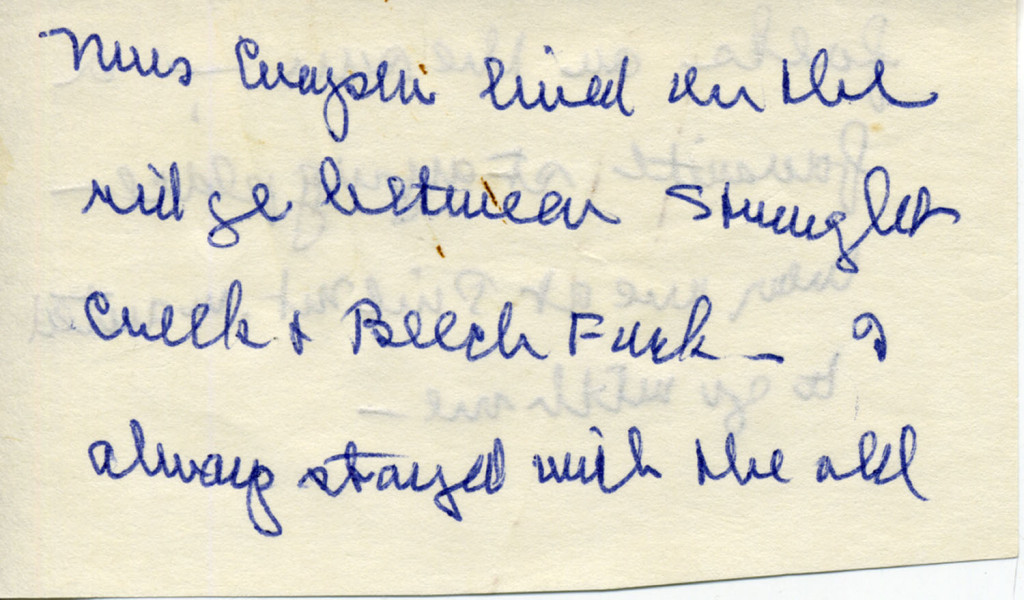 lived on the
ridge between Straight
Creek + Beech Fork – I
always stayed with the old